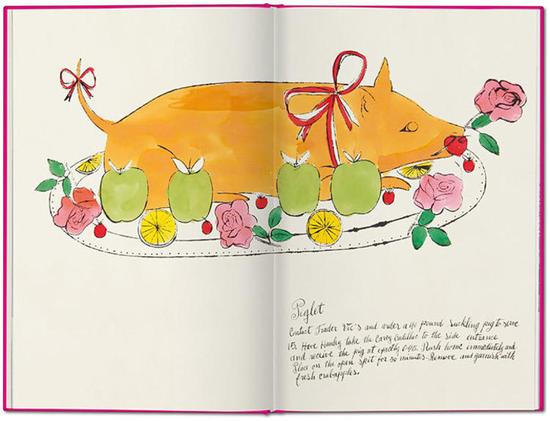 Piglet
Contact Trader Vic's and order a 40 pound suckling pig to serve
15. Have Hanley take the Carey Cadillac to the side entrance
and receive the pig at exactly 6:45. Rush home immediately and
place on the open spit for 50 minutes. Remove and garnish with
fresh crabapples.